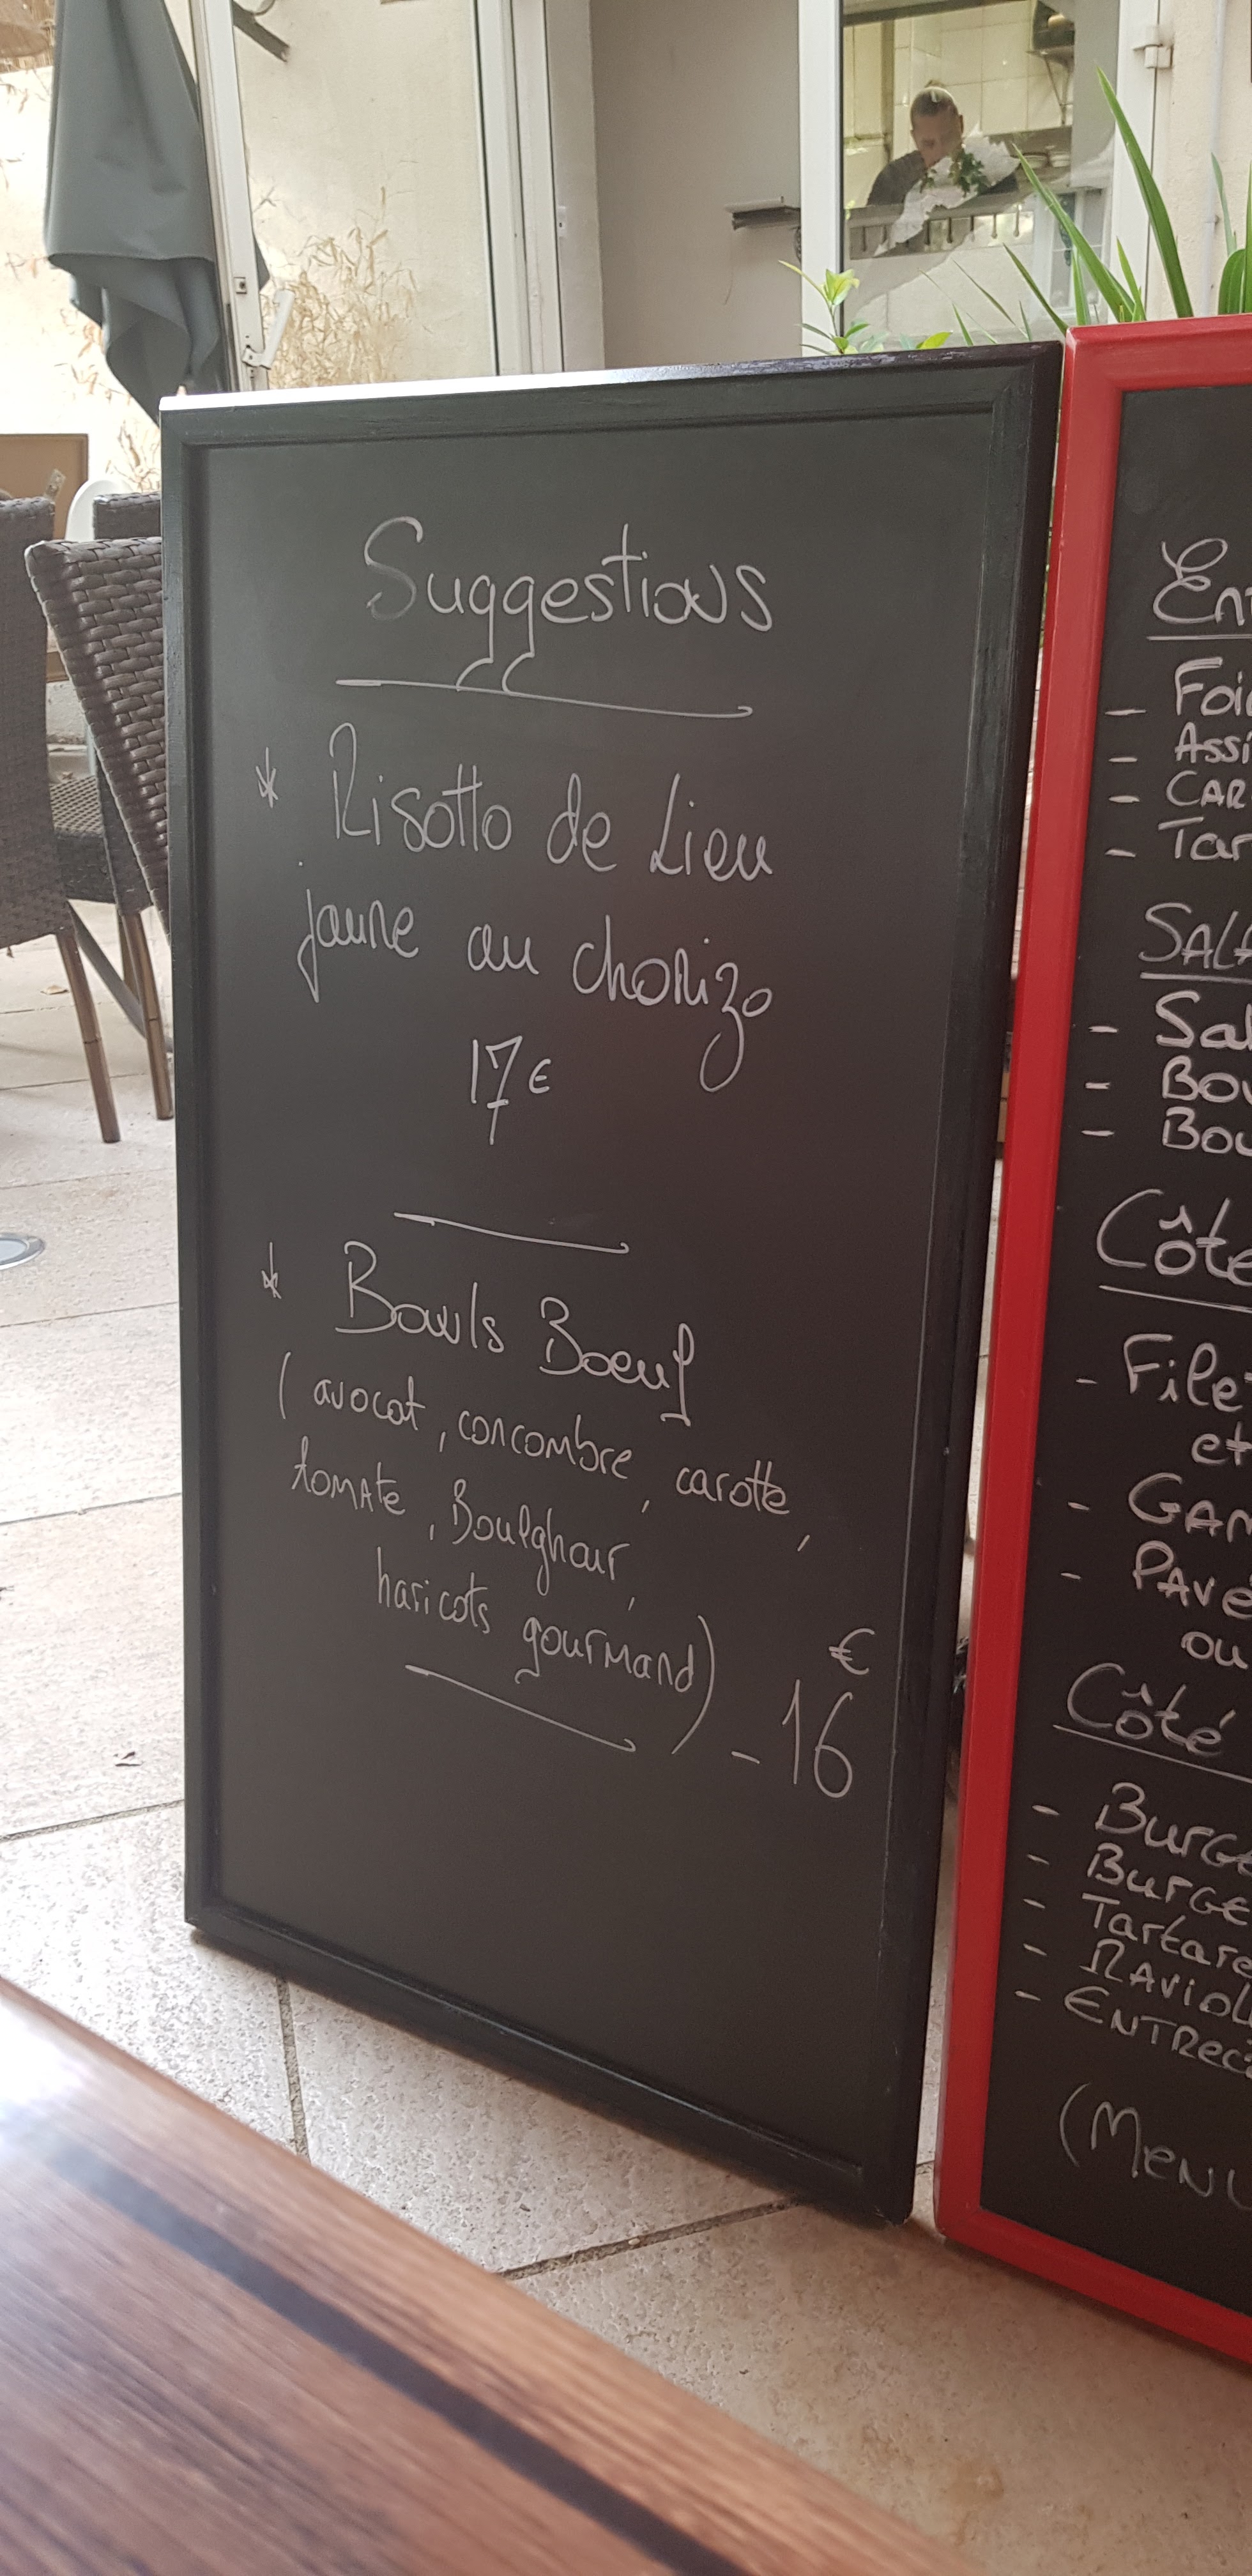 Suggestions
* Risotto de Lieu
jaune au chorizo
17€
* Bowls Boeuf
( avocat, concombre, carotte,
tomate, Boulghour,
haricots gourmand) - 16 €
- 
- 
- 
- Tar
- Sal
Côté
- File
et
- 
- Pavé
ou
Côté
- Burge
- Burge
- Tartare
- Raviol
- Entrec
(Menu